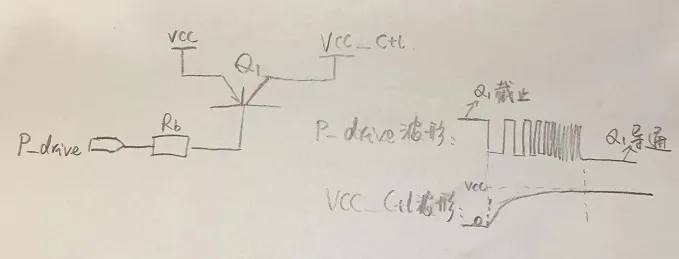 VCC
Q1
VCC_Ctl
Rb
P_drive
Q1截止
P_drive波形:
Q1导通
VCC
VCC_Ctl波形:
0